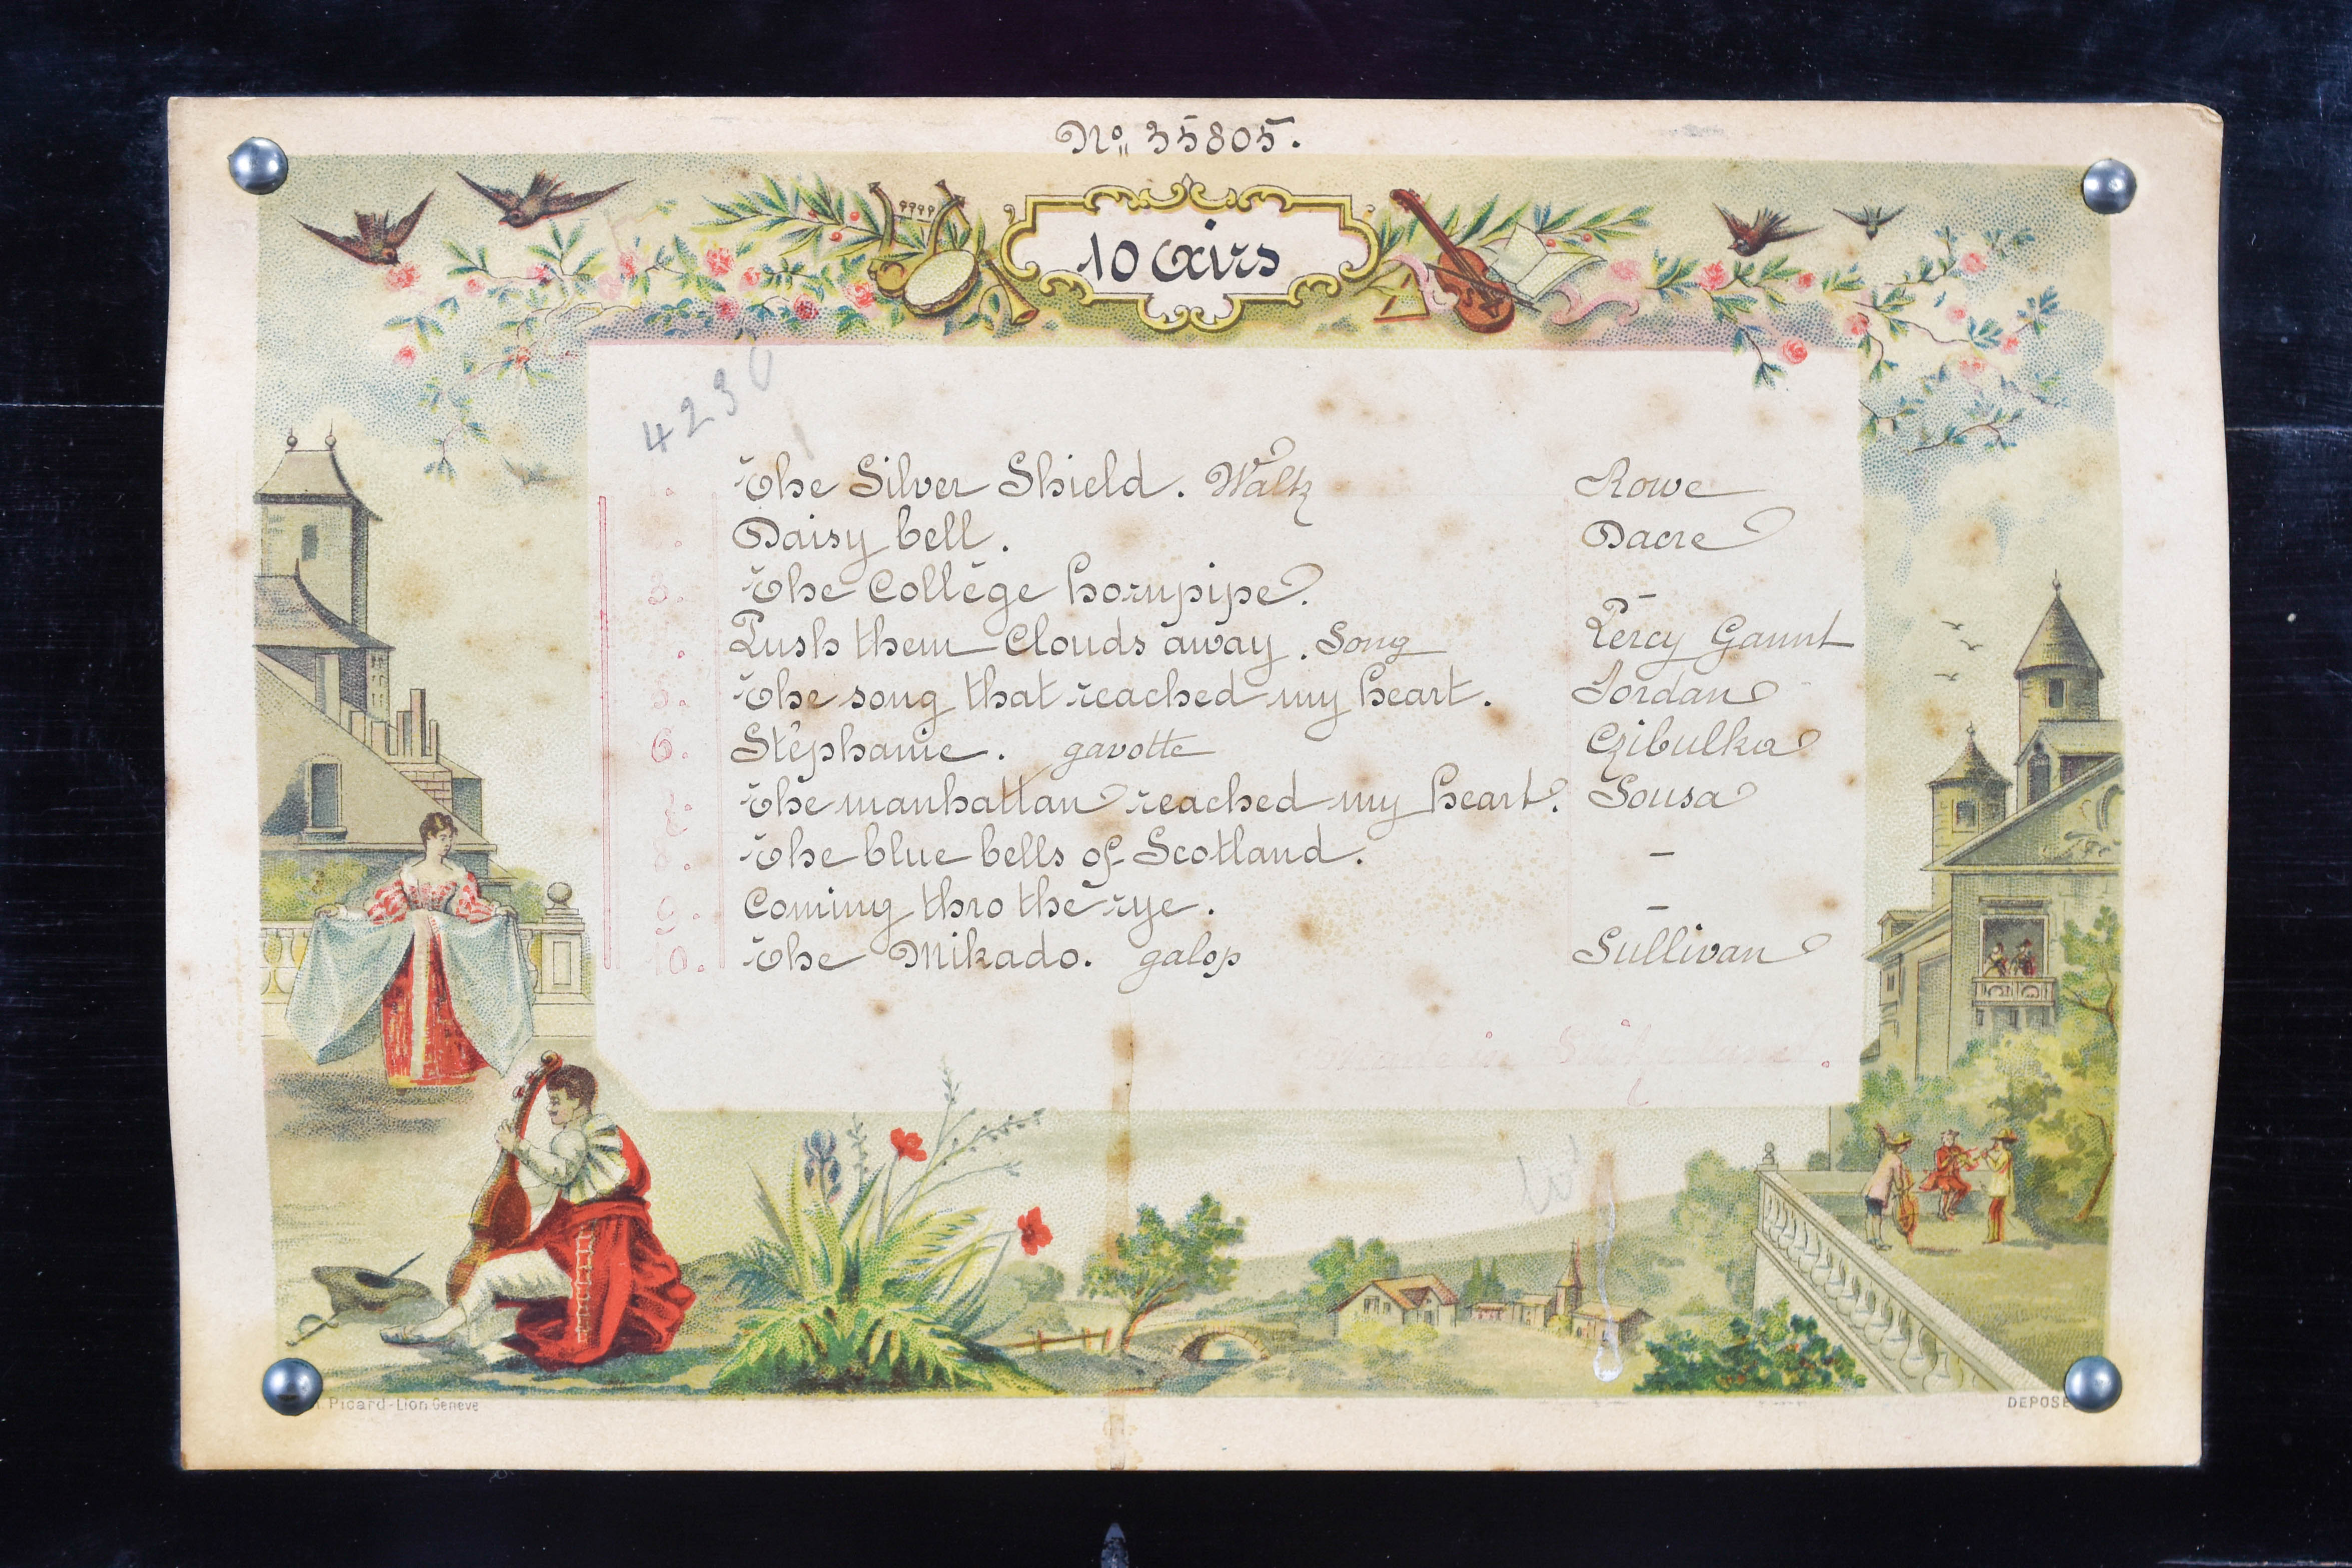 No 35805.
10 airs
4230
The Silver Shield. Waltz Rowe
Daisy bell. Dacre
3. The Collège hornpipe. –
Push them Clouds away. Song Percy Gaunt
5. The song that reached my heart. Jordan
6. Stéphanie. gavotte Czibulka
The manhattan reached my heart. Sousa
8. The blue bells of Scotland. –
9. Coming thro the rye. –
10. The Mikado. galop Sullivan
Made in Switzerland.
Picard-Lion Genève
DEPOSE